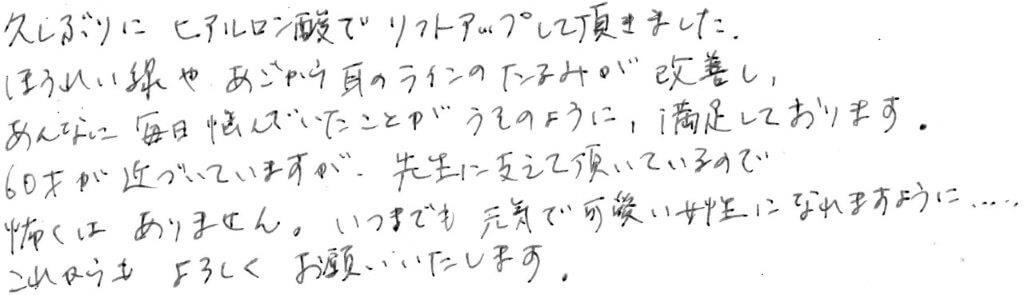 久しぶりに ヒアルロン酸で リフトアップして頂きました.
ほうれい線や あごから耳のラインのたるみが 改善し,
あんなに 毎日悩んでいたことが うそのように, 満足しております.
60才が近づいていますが. 先生に支えて頂いているので
怖くは ありません。いつまでも 元気で可愛い女性になれますように.....
これからも よろしく お願いいたします.